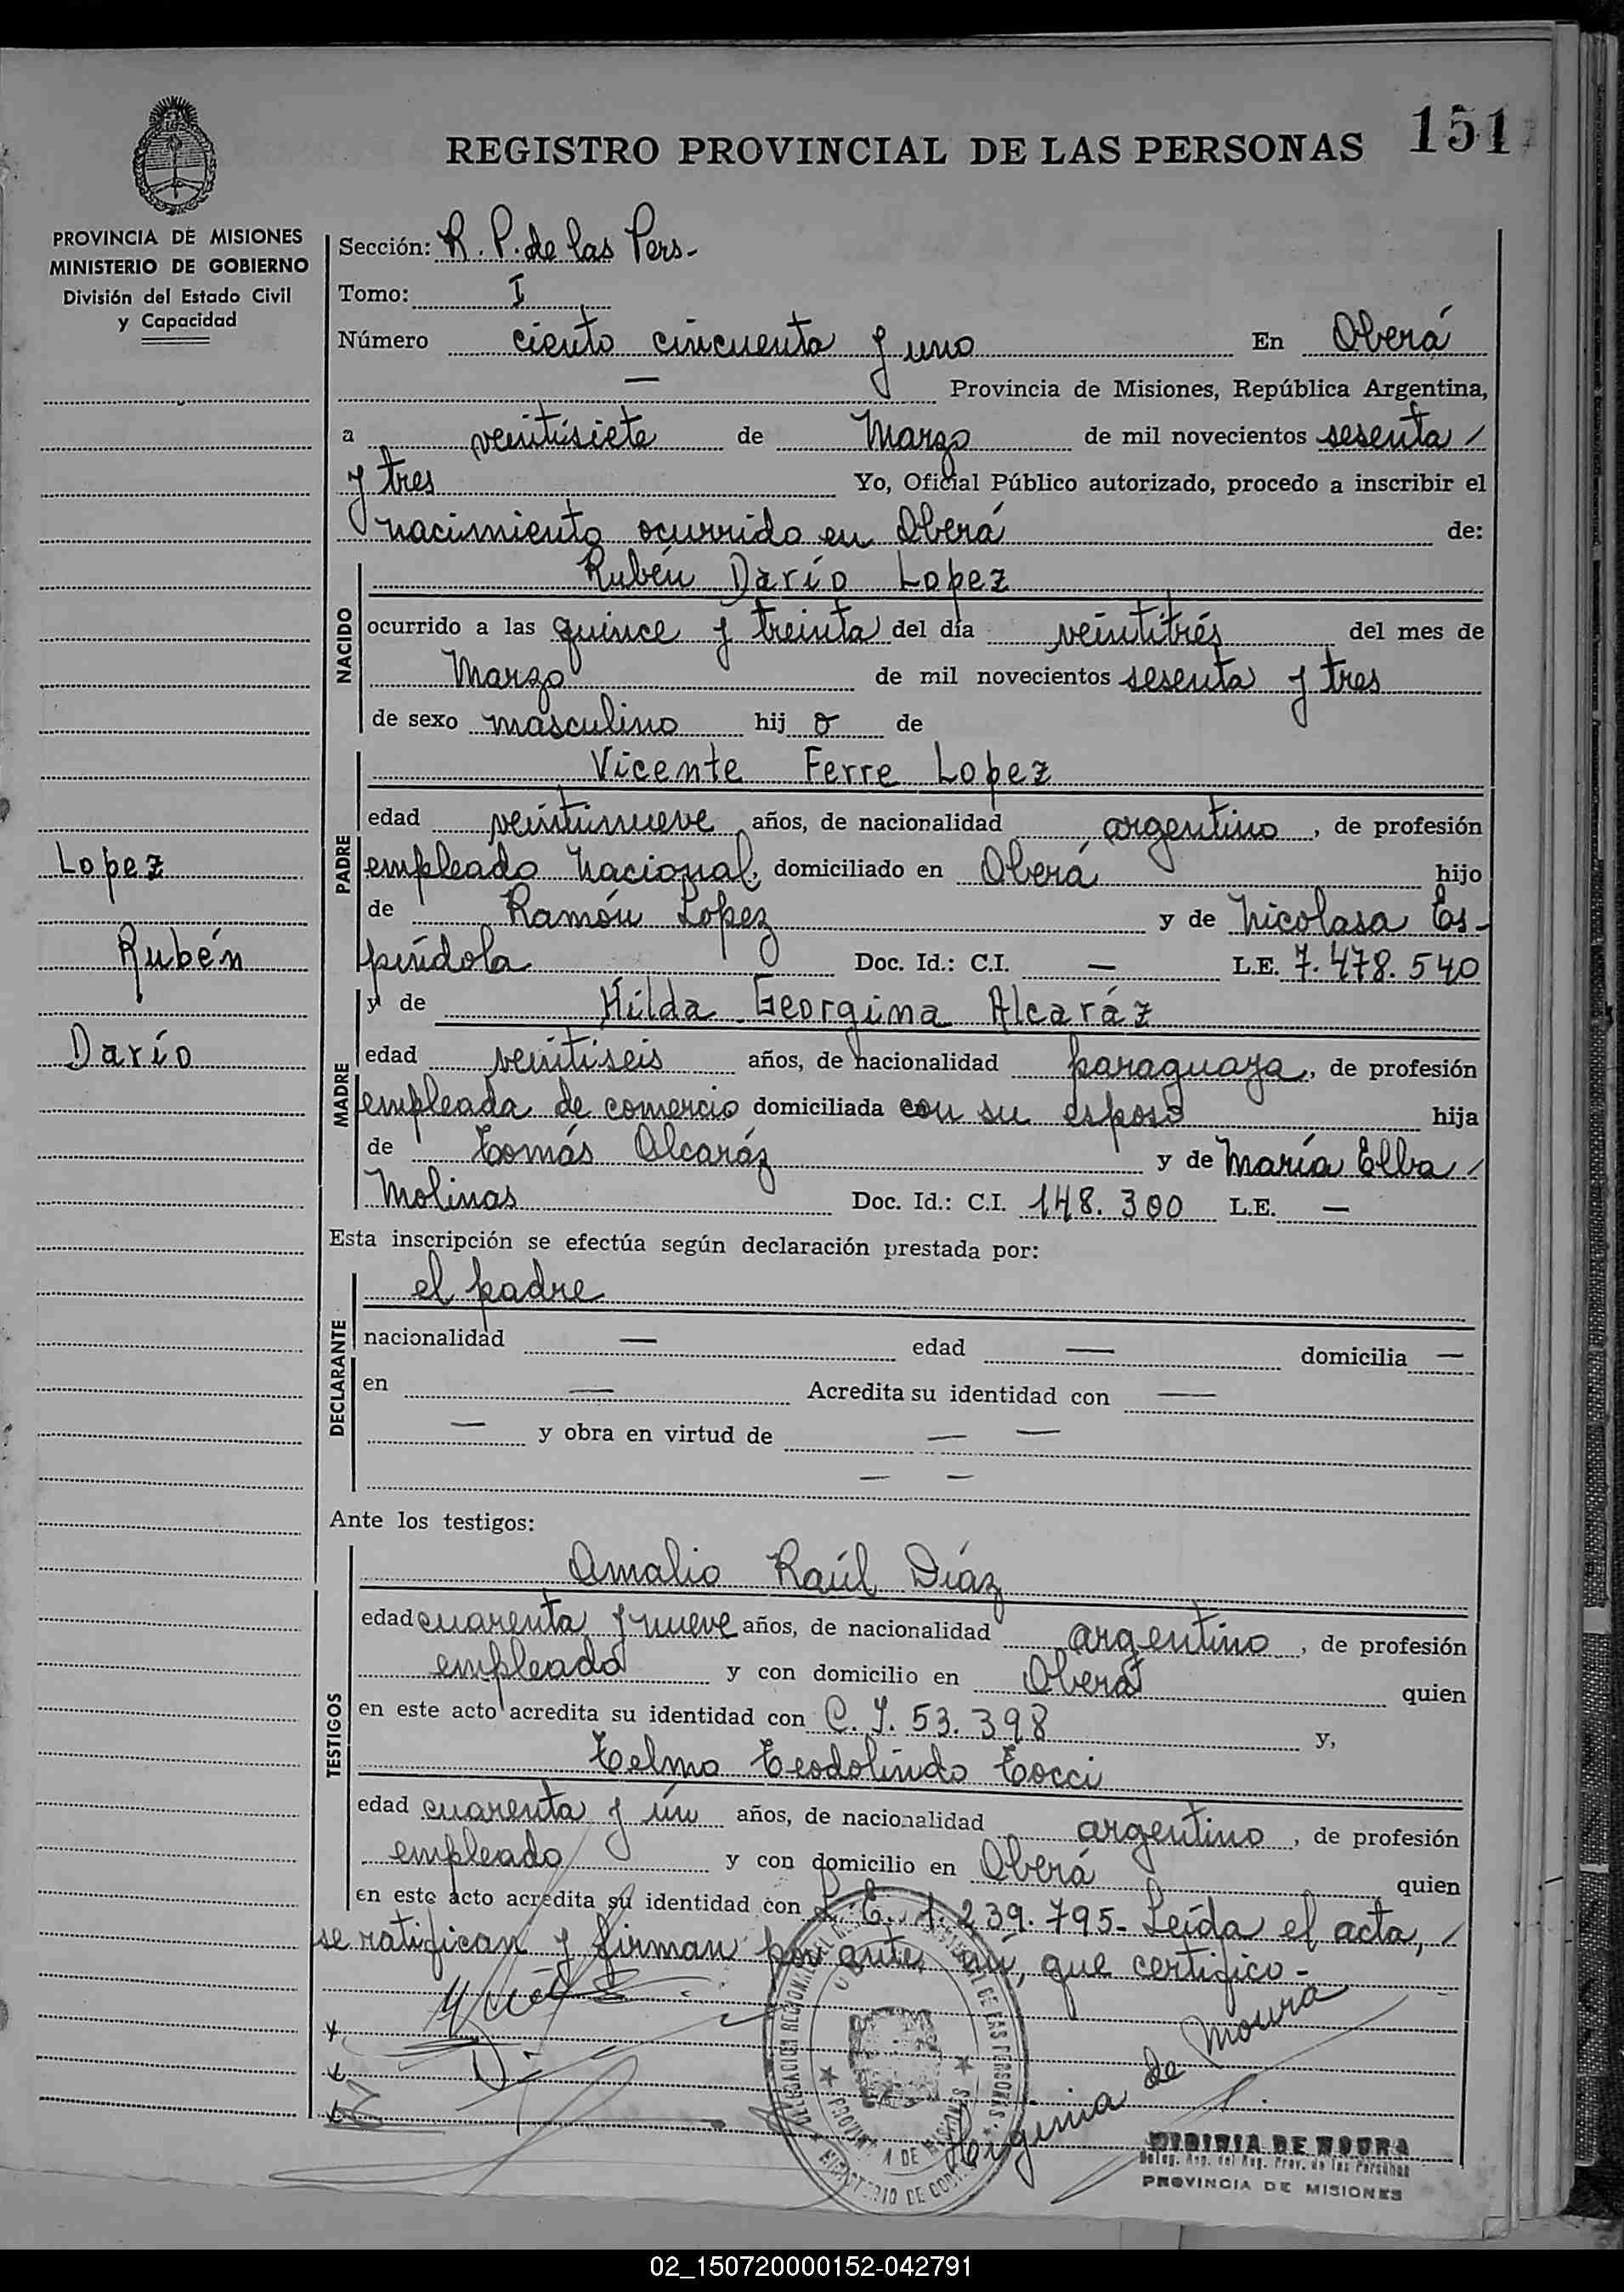 REGISTRO PROVINCIAL DE LAS PERSONAS 151
PROVINCIA DE MISIONES
MINISTERIO DE GOBIERNO
División del Estado Civil
y Capacidad
Lopez
Rubén
Darío
Sección: R. P. de las Pers-
Tomo: I
Número ciento cincuenta y uno En Oberá
— Provincia de Misiones, República Argentina,
a veintisiete de Marzo de mil novecientos sesenta /
y tres Yo, Oficial Público autorizado, procedo a inscribir el
nacimiento ocurrido en Oberá de:
NACIDO
Rubén Darío Lopez
ocurrido a las quince y treinta del día veintitrés del mes de
Marzo de mil novecientos sesenta y tres
de sexo masculino hij o de
PADRE
Vicente Ferre Lopez
edad veintinueve años, de nacionalidad argentino, de profesión
empleado nacional, domiciliado en Oberá hijo
de Ramón Lopez y de Nicolasa Es-
píndola Doc. Id.: C.I. — L.E. 7.478.540
MADRE
y de Hilda Georgina Alcaráz
edad veintiseis años, de nacionalidad paraguaya, de profesión
empleada de comercio domiciliada con su esposo hija
de Tomás Alcaráz y de María Elba /
Molinas Doc. Id.: C.I. 148.300 L.E. —
Esta inscripción se efectúa según declaración prestada por:
DECLARANTE
el padre
nacionalidad — edad — domicilia —
en — Acredita su identidad con —
— y obra en virtud de — —
— —
Ante los testigos:
TESTIGOS
Amalio Raúl Díaz
edad cuarenta y nueve años, de nacionalidad argentino, de profesión
empleado y con domicilio en Oberá quien
en este acto acredita su identidad con C. I. 53.398 y,
Telmo Teodolindo Tocci
edad cuarenta y ún años, de nacionalidad argentino, de profesión
empleado y con domicilio en Oberá quien
en este acto acredita su identidad con L. E. 1.239.795- Leída el acta, /
se ratifican y firman por ante mí, que certifico-
de Moura
DE MOURA
Deleg. Reg. del Reg. Prov. de las Personas
PROVINCIA DE MISIONES
02_150720000152-042791